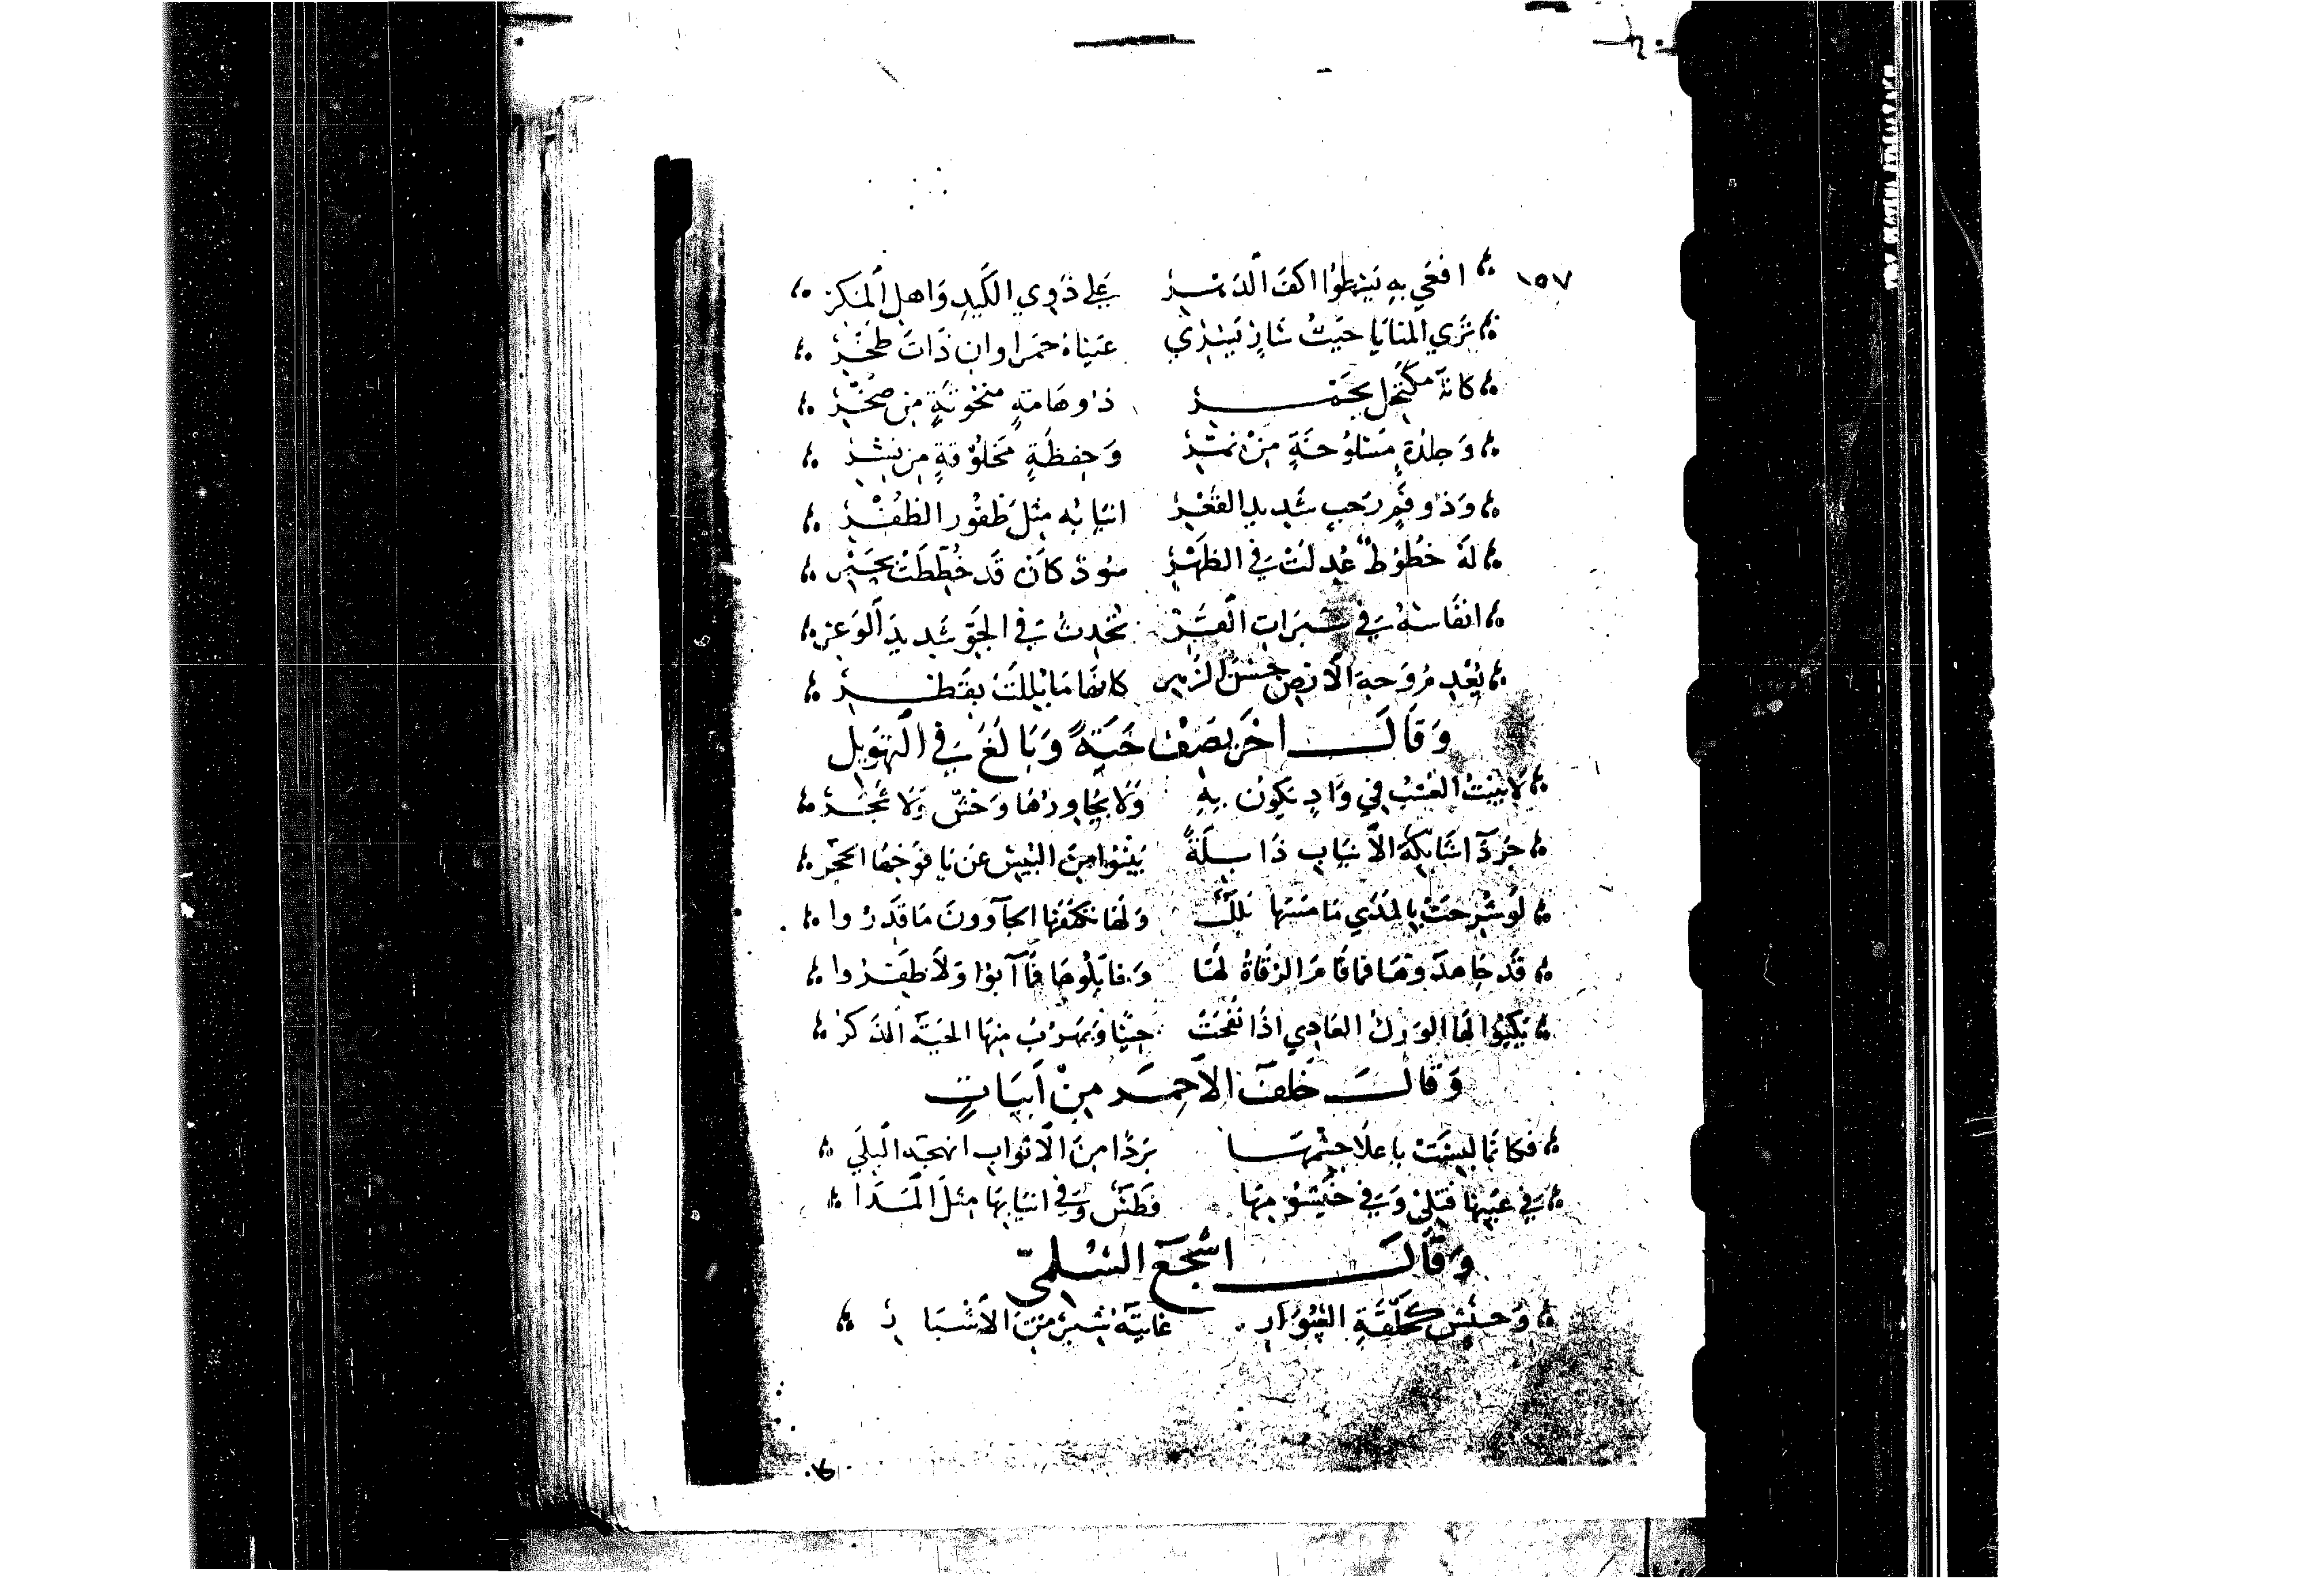 ١٥٧
افعي به يسطوا اكف الدهر على ذوي الكيد واهل المكر
تري المنايا حيث شار يسري عيناه حمراوان ذات
كانه مكتحل بجمر ذو هامة منحوتة من صخر
وجلدة مسلوخة من نمر وحفظة مخلوقة من
وذو فم رحب شديد القعر انيابه مثل ظفور الظفر
له خطوط عدلت في الظهر سود كان قد خططت بحبر
انفاسه في الحر تحدث في الجو شديد الوعر
الارض كانها ما بللت بقطر
وقال اخر يصف حية وبالغ في التهويل
لا ينبت العشب في واد يكون به ولا يجاورها وحش ولا شجر
جردآ شابكة الانياب ذابلة ينبوا من اليبس عن يافوخها الحجر
لو شرحت بالمدي ما مسها بلل ولها تكنفها الحآوون ما قدروا
قد جاهدوها فما قام الرقاة لها وقابلوها فمآ آبوا ولا ظفروا
يكبوا لها الورل العادي اذا نفخت جبنا ويهرب منها الحية الذكر
وقال خلف الاحمر من ابيات
فكانما لبست باعلا جسمها بردا من الاثواب انهجه البلي
في عينها قبل وفي خيشومها فطس وفي انيابها مثل المدا
وقال اشجع السلمي
وحنش كحلقة السوار غايته شبر من الاشبار